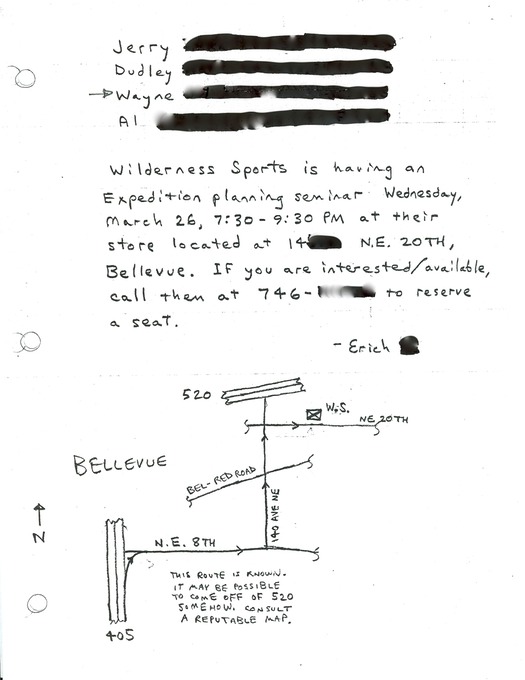 Jerry
Dudley
Wayne
Al
Wilderness Sports is having an
Expedition planning seminar Wednesday,
March 26, 7:30-9:30 PM at their
store located at 14 N.E. 20TH,
Bellevue. If you are interested/available,
call them at 746- to reserve
a seat.
- Erich
520
W.S.
NE 20TH
BELLEVUE
BEL-RED ROAD
140 AVE NE
N
N.E. 8TH
THIS ROUTE IS KNOWN.
IT MAY BE POSSIBLE
TO COME OFF OF 520
SOMEHOW. CONSULT
A REPUTABLE MAP.
405